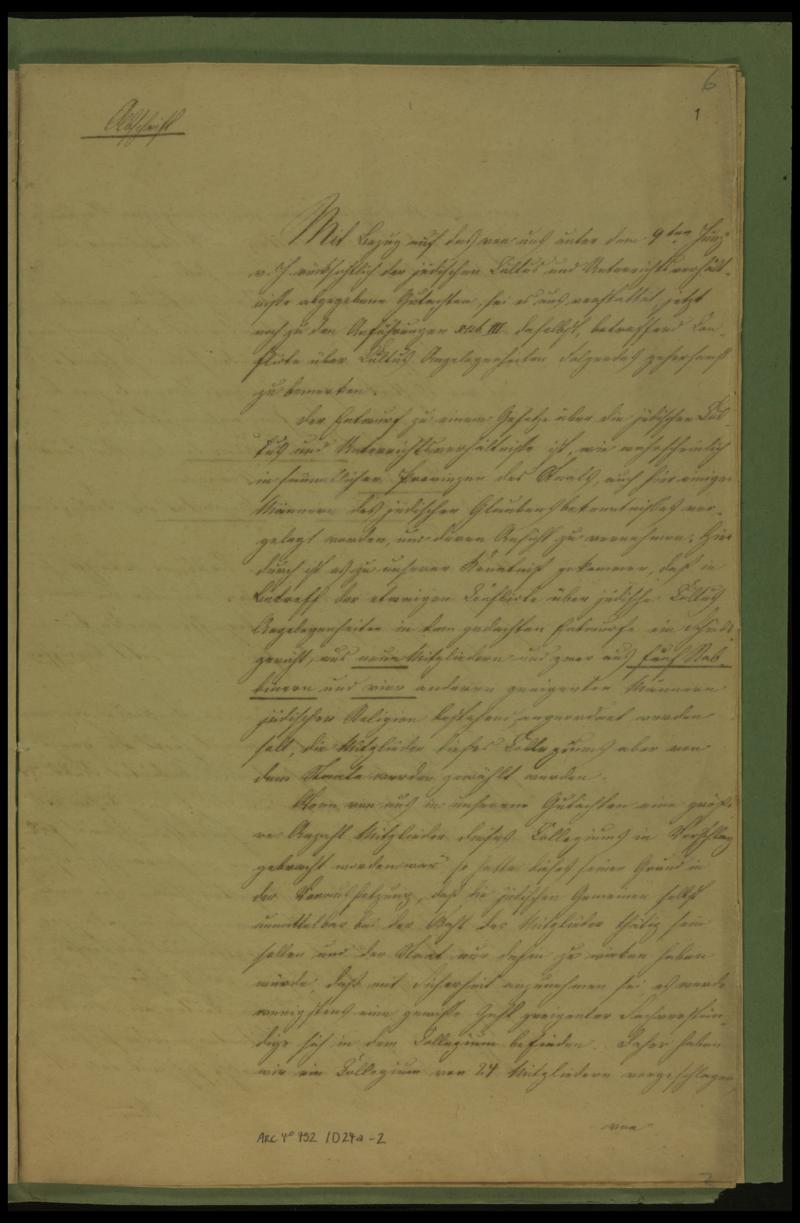 6
1
Abschrift
Mit Bezug auf das von uns unter dem 9ten Juny
v. J. rücksichtlich der jüdischen Cultus und Unterrichts verhält-
nisse abgegebene Gutachten, sei es uns verstattet jetzt
noch zu den Anführungen sub III daselbst, betreffend Con-
flicte über Cultus Angelegenheiten Folgendes gehorsamst
zu bemerken.
Der Entwurf zu einem Gesetze über die jüdischen Cul-
tus und Unterrichtsverhältnisse ist, wie wahrscheinlich
in sämmtlichen Provinzen des Staats, auch hier einigen
Männern des jüdischen Glaubensbekenntnisses vor-
gelegt worden, um deren Ansicht zu vernehmen. Hier
durch ist es zu unserer Kenntniß gekommen, daß in
Betreff der etwaigen Conflicte über jüdische Cultus
Angelegenheiten in dem gedachten Entwurfe ein Schieds
gericht, aus neun Mitgliedern und zwar aus fünf Rab-
binern und vier anderen geeigneten Männern
jüdischer Religion bestehend angeordnet werden
soll, die Mitglieder dieses Collegiums aber von
dem Staate werden gewählt werden.
Wenn von uns in unserem Gutachten eine größe-
re Anzahl Mitglieder dieses Collegiums in Vorschlag
gebracht worden war so hatte dieses seinen Grund in
der Voraussetzung, daß die jüdischen Gemeinen selbst
unmittelbar bei der Wahl der Mitglieder thätig sein
sollen und der Staat nur dahin zu wirken haben
würde, daß mit Sicherheit anzunehmen sei es werde
wenigstens eine gewisse Zahl geeigneter Sachverstän-
dige sich in dem Collegium befinden. Daher haben
wir ein Collegium von 24 Mitgliedern vorgeschlagen
von
ARC 4° 792 / D24a-2
2